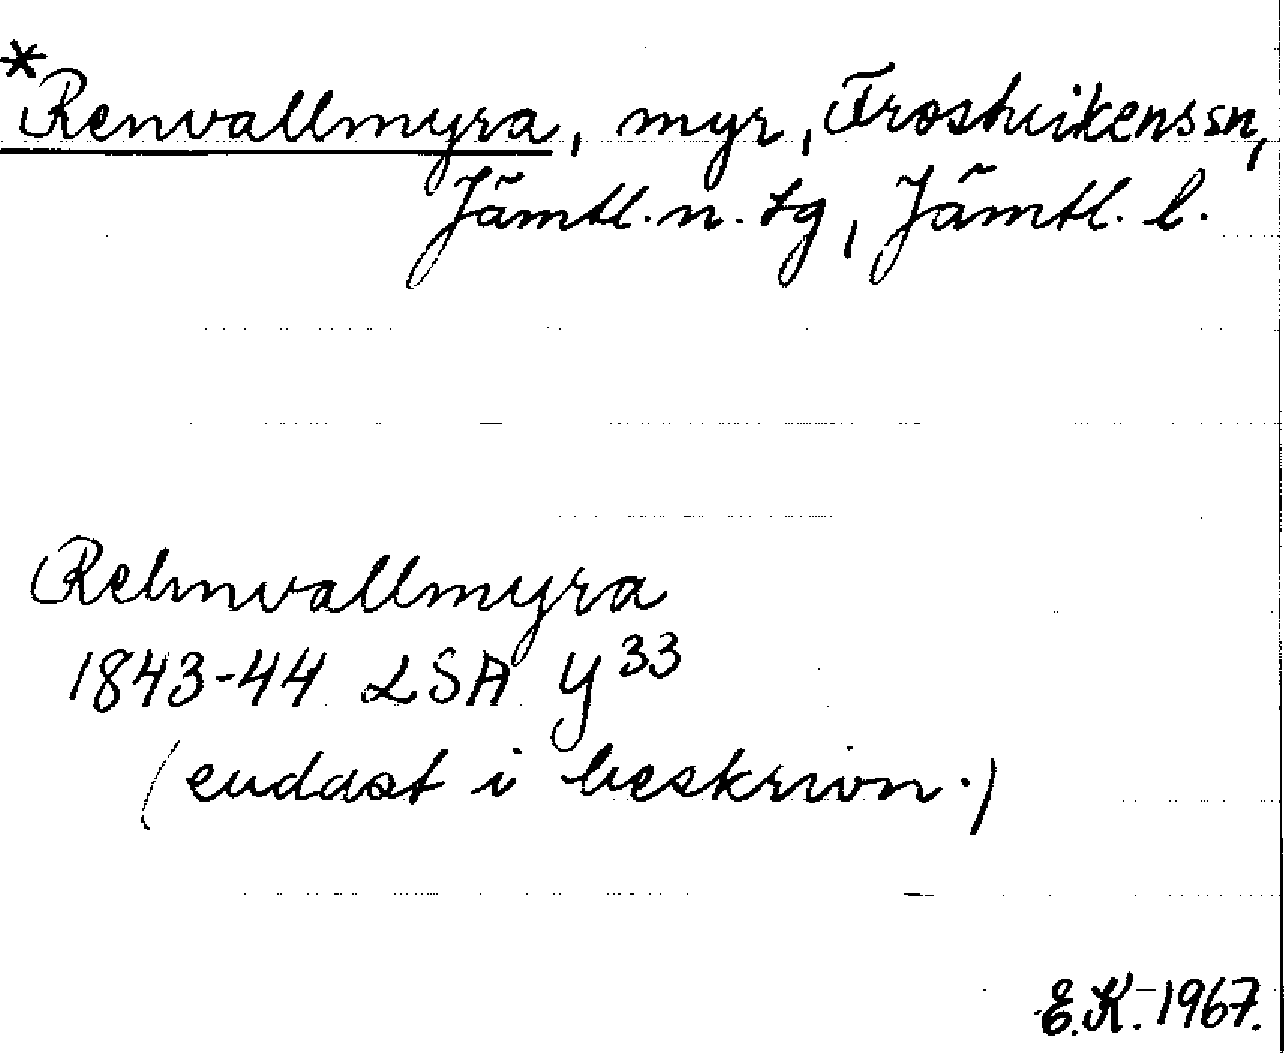 *Renvallmyra, myr, Frostvikens sn,
Jämtl. n. tg, Jämtl. l.
Rehnvallmyra
1843-44 LSA Y 33
(endast i beskrivn.)
E.K. 1967.